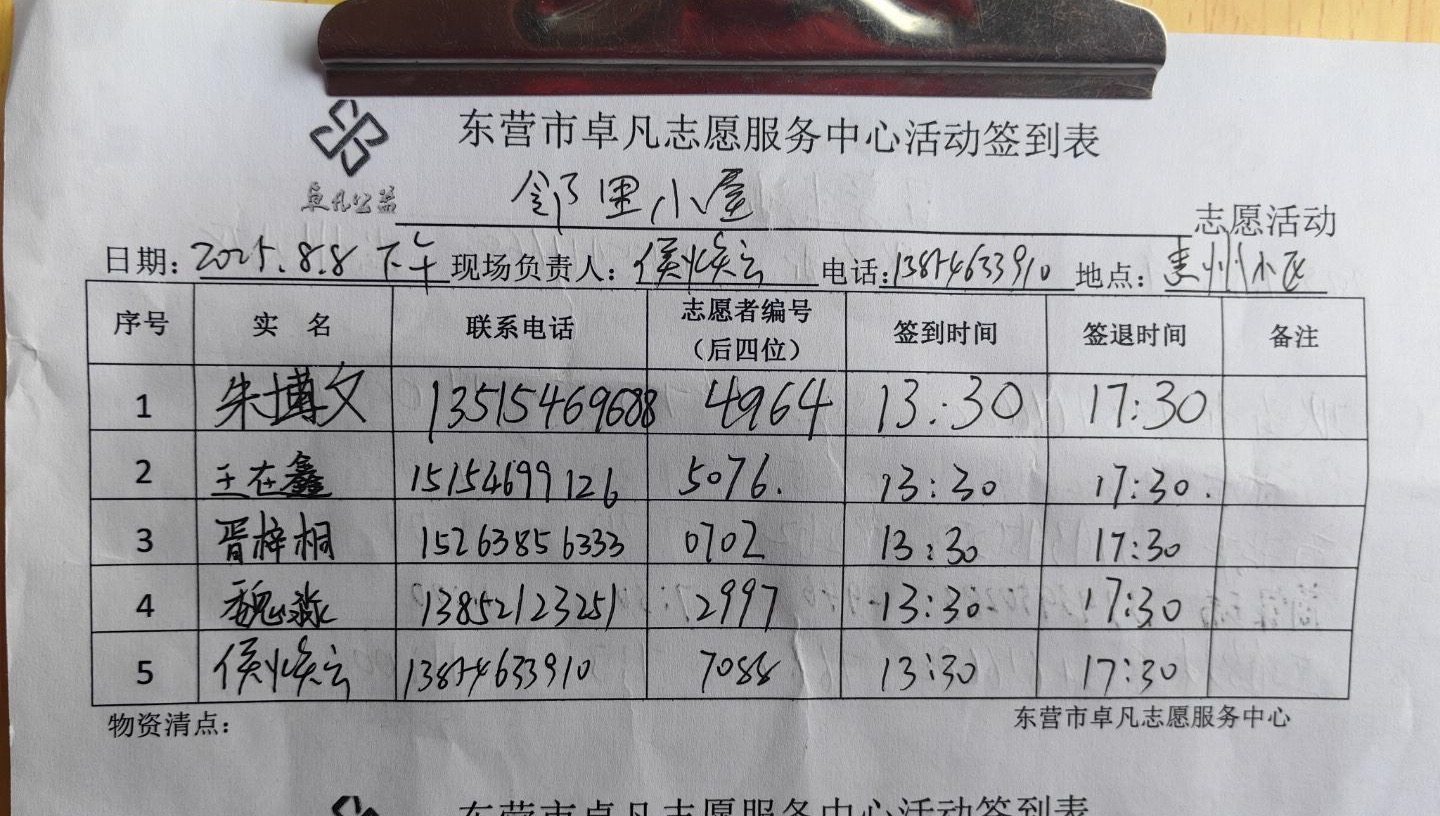 东营市卓凡志愿服务中心活动签到表
卓凡公益
邻里小屋 志愿活动
日期：2025.8.8 下午 现场负责人：侯焕云 电话：13854633910 地点：惠州小区
序号 实 名 联系电话 志愿者编号（后四位） 签到时间 签退时间 备注
1 朱博文 13515469688 4964 13:30 17:30
2 王在鑫 15154699126 5076. 13:30 17:30.
3 胥梓桐 15263856333 0702 13:30 17:30
4 魏淼 13852123251 2997 13:30 17:30
5 侯焕云 13854633910 7088 13:30 17:30
物资清点： 东营市卓凡志愿服务中心
东营市卓凡志愿服务中心活动签到表